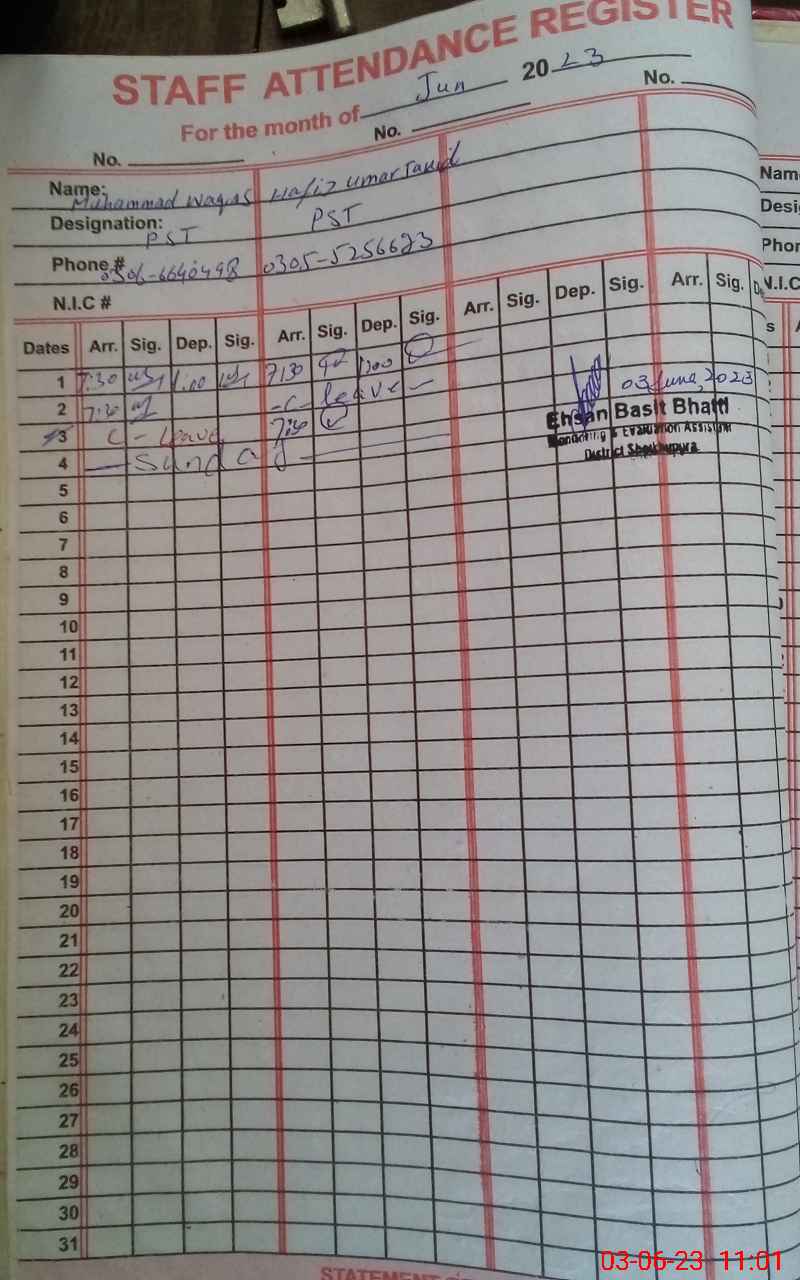 STAFF ATTENDANCE REGISTER
For the month of Jun 2023
No. No. No.
Name: Muhammad Waqas Hafiz Umar Farid
Designation: PST PST
Phone # 0306-6640498 0305-5256623
N.I.C #
Dates Arr. Sig. Dep. Sig. Arr. Sig. Dep. Sig. Arr. Sig. Dep. Sig. Arr. Sig. De
1 7:30 1:00 7:30 1:00
2 7:30 -C- leave -
3 C - Leave 7:30
4 Sunday
03 June, 2023
Ehsan Basit Bhatti
Monitoring & Evaluation Assistant
District Sheikhupura
5
6
7
8
9
10
11
12
13
14
15
16
17
18
19
20
21
22
23
24
25
26
27
28
29
30
31
Nam
Desi
Phor
N.I.C
s
STATEMENT
03-06-23 11:01